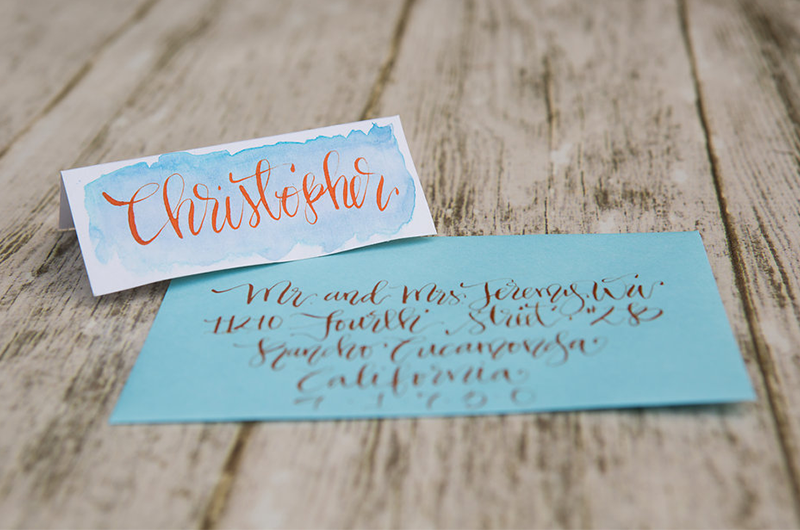 Christopher
Mr. and Mrs. Jeremy Wu
11210 Fourth Street #28
Rancho Cucamonga
California